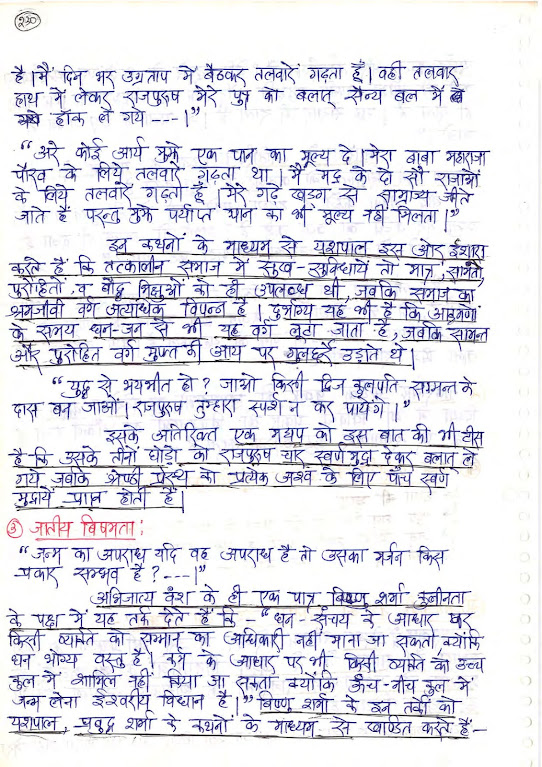 230
है। मैं दिन भर उग्रताप में बैठकर तलवारें गढ़ता हूँ। वही तलवार
हाथ में लेकर राजपुरूष मेरे पुत्र को बलात् सैन्य बल में
हॉक ले गये ---।"
"अरे कोई आर्य मुझे एक पान का मूल्य दे। मेरा बाबा महाराजा
पौरव के लिये तलवारें गढ़ता था। मैं मद्र के दो सौ राजाओं
के लिये तलवारें गढ़ता हूँ। मेरे गढ़े खड्ग से साम्राज्य जीते
जाते हैं परन्तु मुझे पर्याप्त पान का भी मूल्य नहीं मिलता।"
इन कथनों के माध्यम से यशपाल इस ओर ईशारा
करते हैं कि तत्कालीन समाज में सुख-सुविधायें तो मात्र, सामंतो,
पुरोहितों, व बौद्ध भिक्षुओं को ही उपलब्ध थी, जबकि समाज का
श्रमजीवी वर्ग अत्यधिक विपन्न है। दुर्भाग्य यह भी है कि आक्रमणों
के समय धन-जन से भी यह वर्ग लूटा जाता है, जबकि सामन्त
और पुरोहित वर्ग मुफ्त की आय पर गुलछर्रे उड़ाते थे।
"युद्ध से भयभीत हो? जाओ किसी द्विज कुलपति सामन्त के
दास बन जाओ। राजपुरूष तुम्हारा स्पर्श न कर पायेंगे।"
इसके अतिरिक्त एक मद्यप को इस बात की भी टीस
है कि उसके तीनों घोड़ो को राजपुरूष चार स्वर्ण मुद्रा देकर बलात् ले
गये जबकि श्रेष्ठी प्रेस्थ को प्रत्येक अश्व के लिए पाँच स्वर्ण
मुद्रायें प्राप्त होती हैं।
③ जातीय विषमता:
"जन्म का अपराध यदि वह अपराध है तो उसका मार्जन किस
प्रकार सम्भव है? ---।"
अभिजात्य वंश के ही एक पात्र विष्णु शर्मा कुलीनता
के पक्ष में यह तर्क देते हैं कि - "धन-संचय के आधार पर
किसी व्यक्ति को सम्मान का अधिकारी नहीं माना जा सकता, क्योंकि
धन भोग्य वस्तु है। कर्म के आधार पर भी किसी व्यक्ति को उच्च
कुल में शामिल नहीं किया जा सकता क्योंकि ऊँच-नीच कुल में
जन्म लेना ईश्वरीय विधान है।" विष्णु शर्मा के इन तर्को को
यशपाल, प्रवुद्ध शर्मा के कथनों के माध्यम से खण्डित करते हैं-